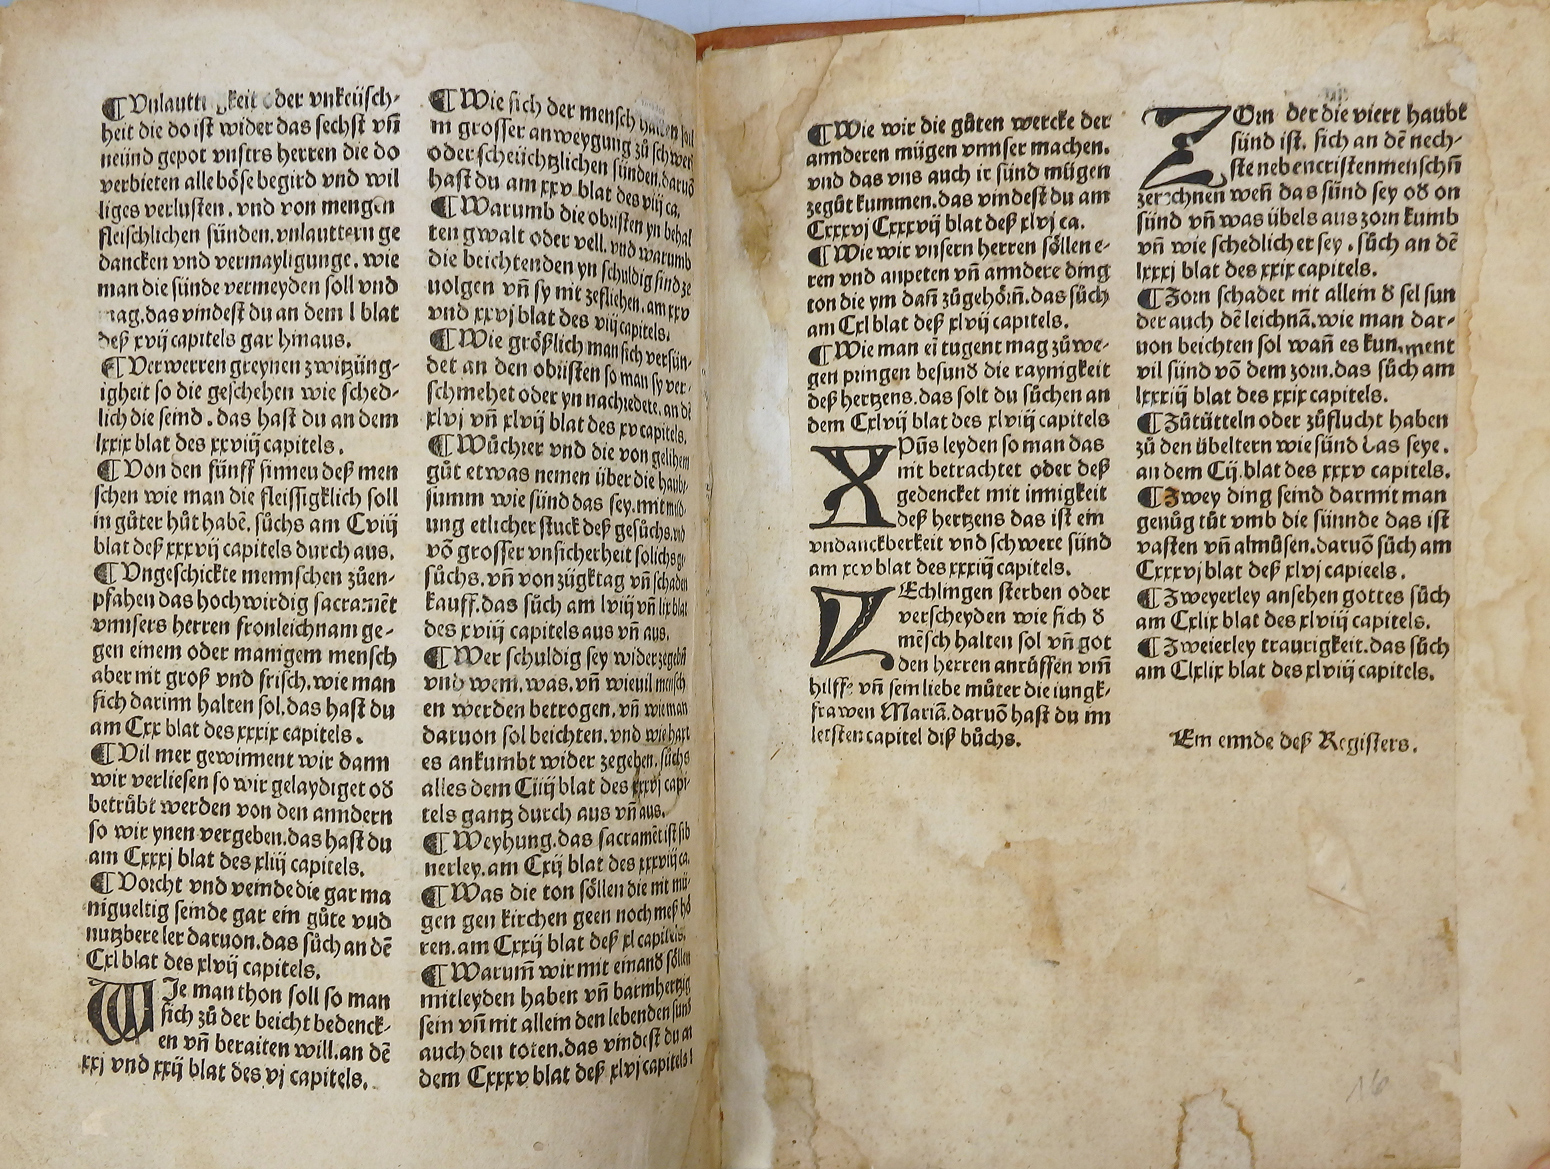 ¶ Vnlautti keit oder vnkeüsch-
heit die do ist wider das sechst vn̄
neünd gepot vnsers herren die do
verbieten alle böse begird vnd wil
liges verlusten. vnd von mengen
fleischlichen sünden. vnlauttern ge
dancken vnd vermayligunge. wie
man die sünde vermeyden soll vnd
mag. das vindest du an dem l blat
deß xvij capitels gar hinaus.
¶ Verwerren greynen zwitzüng-
igheit so die geschehen wie sched-
lich die seind. das hast du an dem
lxxix blat des xxviij capitels.
¶ Von den fünff sinneu deß men
schen wie man die fleissigklich soll
in gůter hůt habē. sůchs am Cviij
blat deß xxxvij capitels durch aus.
¶ Vngeschickte mennschen zůen-
pfahen das hochwirdig sacramēt
vnnsers herren fronleichnam ge-
gen einem oder manigem mensch
aber nit groß vnd frisch. wie man
sich darinn halten sol. das hast du
am Cxx blat des xxxix capitels.
¶ Vil mer gewinnent wir dann
wir verliesen so wir gelaydiget od̄
betrůbt werden von den anndern
so wir ynen vergeben. das hast du
am Cxxxj blat des xliij capitels.
¶ Vorcht vnd veinde die gar ma
nigueltig seinde gar ein gůte vud
nutzbere ler daruon. das sůch an dē
Cxl blat des xlvij capitels.
WJe man thon soll so man
sich zů der beicht bedenck-
en vn̄ beraiten will. an dē
xxj vnd xxij blat des vj capitels.
¶ Wie sich der mensch halten sol
in grosser anweygung zů schwer
oder scheüchtzlichen sünden. daruō
hast du am xxv blat des viij ca.
¶ Warumb die obristen yn behal
ten gwalt oder vell. vnd warumb
die beichtenden yn schuldig sind ze
uolgen vn̄ sy nit zefliehen. am xxv
vnd xxvj blat des viij capitels.
¶ Wie größlich man sich versün-
det an den obristen so man sy ver-
schmehet oder yn nachredete. an dē
xlvj vn̄ xlvij blat des xv capitels.
¶ Wůchrer vnd die von gelihem
gůt etwas nemen über die haubt-
summ wie sünd das sey. mit meld-
ung etlicher stuck deß gesůchs. vnd
vō grosser vnsicherheit solichs ge-
sůchs. vn̄ von zügktag vn̄ schaden
kauff. das sůch am lviij vn̄ lix blat
des xviij capitels aus vn̄ aus.
¶ Wer schuldig sey wider zegeben
vnd wem. was. vn̄ wieuil mensch
en werden betrogen. vn̄ wie man
daruon sol beichten. vnd wie hart
es ankumbt wider zegeben. sůchs
alles dem Ciiij blat des xxxvj capi-
tels gantz durch aus vn̄ aus.
¶ Weyhung. das sacramēt ist sib
nerley. am Cxij blat des xxxviij ca.
¶ Was die ton söllen die nit mü-
gen gen kirchen geen noch meß hö
ren. am Cxxij blat deß xl capitels.
¶ Warum̄ wir mit einand̄ söllen
mitleyden haben vn̄ barmhertzig
sein vn̄ nit allein den lebenden sund
auch den toten. das vindest du an
dem Cxxxv blat deß xlvj capitels
¶ Wie wir die gůten wercke der
annderen mügen vnnser machen.
vnd das vns auch ir sünd mügen
zegůt kummen. das vindest du am
Cxxxvj Cxxxvij blat deß xlvj ca.
¶ Wie wir vnsern herren söllen e-
ren vnd anpeten vn̄ anndere ding
ton die ym dan̄ zůgehörn̄. das sůch
am Cxl blat deß xlvij capitels.
¶ Wie man ei tugent mag zů we-
gen pringen besund̄ die raynigkeit
deß hertzens. das solt du sůchen an
dem Cxlvij blat des xlviij capitels
XPūs leyden so man das
nit betrachtet oder deß
gedencket mit innigkeit
deß hertzens das ist ein
vndanckberkeit vnd schwere sünd
am xcv blat des xxxiiij capitels.
ZEchlingen sterben oder
verscheyden wie sich d̄
mēsch halten sol vn̄ got
den herren anrůffen vm̄
hilff vn̄ sein liebe můter die iungk-
frawen Mariā. daruō hast du im
letsten capitel diß bůchs.
ZOrn der die viert haubt
sünd ist. sich an dē nech-
ste nebencristenmenschn̄
zerechnen wen̄ das sünd sey od̄ on
sünd vn̄ was übels aus zorn kumb
vn̄ wie schedlich er sey. sůch an dē
lxxxj blat des xxix capitels.
¶ Zorn schadet nit allein d̄ sel sun
der auch dē leichnā. wie man dar-
uon beichten sol wan̄ es kumment
vil sünd vō dem zorn. das sůch am
lxxxiij blat des xxix capitels.
¶ Zůtütteln oder zůflucht haben
zů den übeltern wie sünd das seye.
an dem Cij. blat des xxxv capitels.
¶ Zwey ding seind darmit man
genůg tůt vmb die sünnde das ist
vasten vn̄ almůsen. daruō sůch am
Cxxxvj blat deß xlvj capieels.
¶ Zweyerley ansehen gottes sůch
am Cxlix blat des xlviij capitels.
¶ Zweierley traurigkeit. das sůch
am Clxlix blat des xlviij capitels.
Ein ennde deß Registers.
16